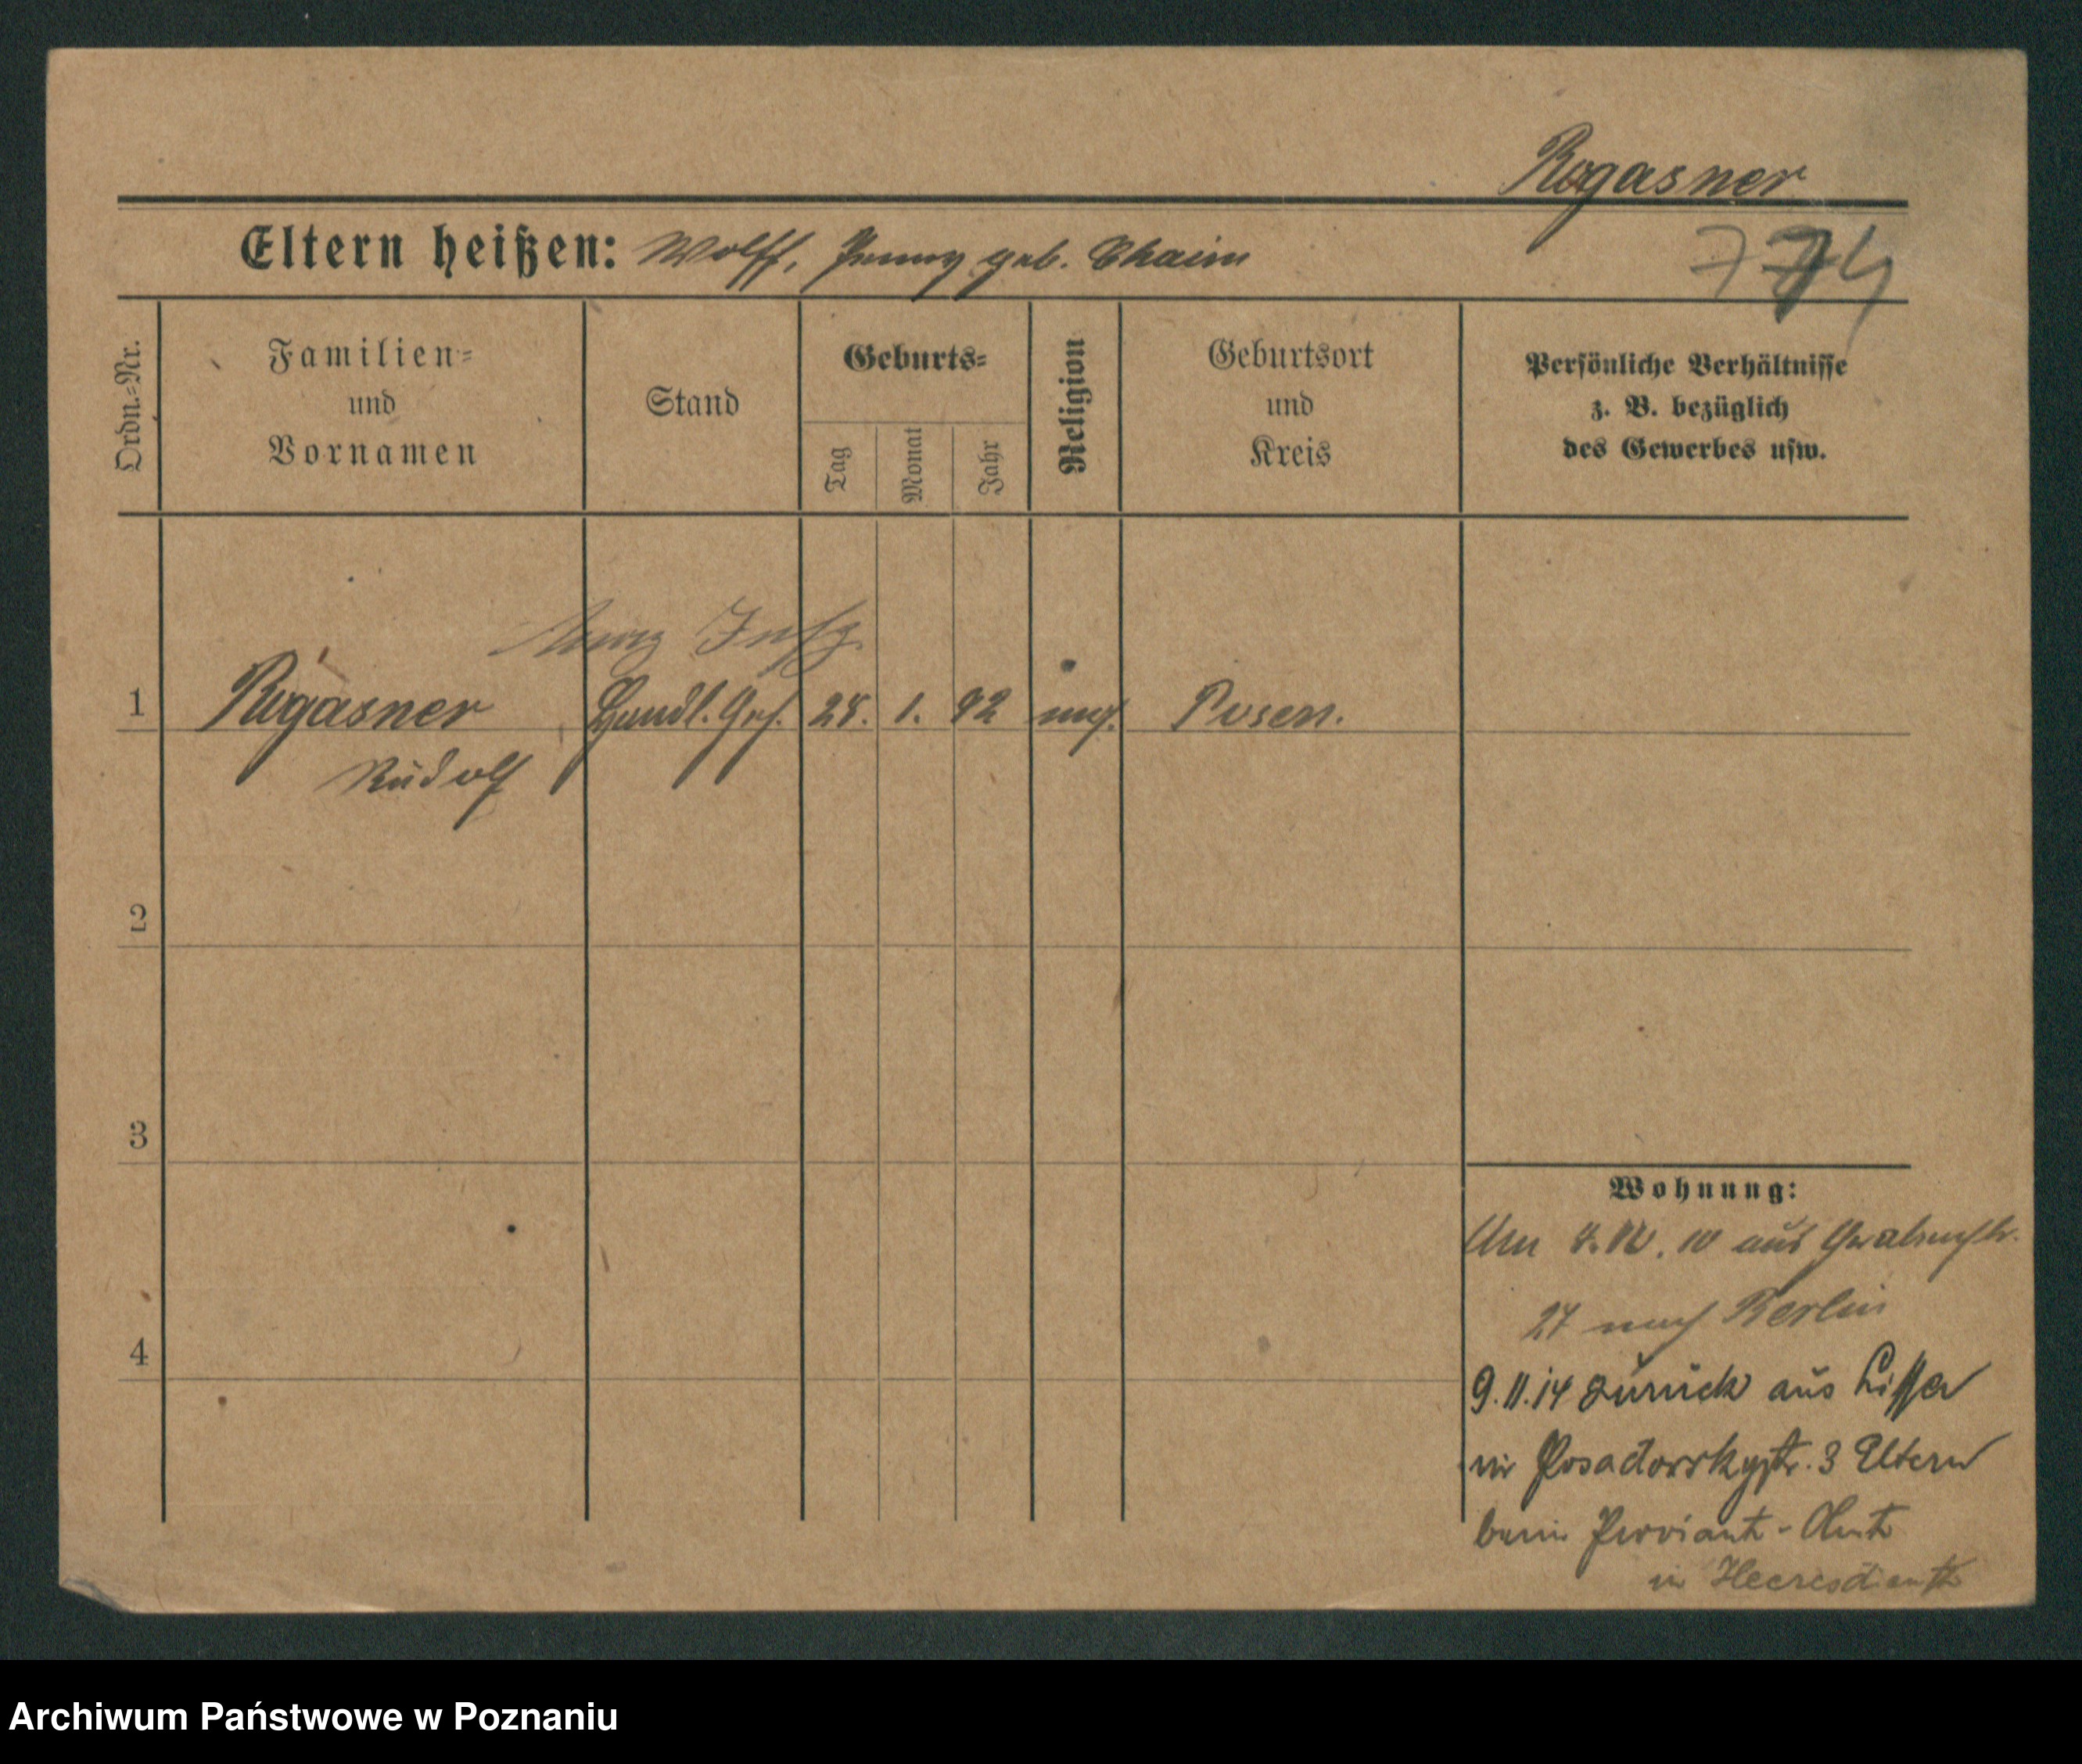 Rogasner
Eltern heißen: Wolff, Jenny geb. Chaim
774
Ordn.=Nr.
Familien=
und
Vornamen
Stand
Geburts=
Tag
Monat
Jahr
Religion
Geburtsort
und
Kreis
Persönliche Verhältnisse
z. B. bezüglich
des Gewerbes usw.
1 Rogasner Handl. Geh. 28. 1. 92 mos. Posen.
Rudolf
2
3
4
Wohnung:
10 aus Grabenstr.
27 nach Berlin
9.11.14 zurück aus Lissa
in Posadowskystr. 3 Eltern
beim Proviant-Amt
in Heeresdienst
Archiwum Państwowe w Poznaniu